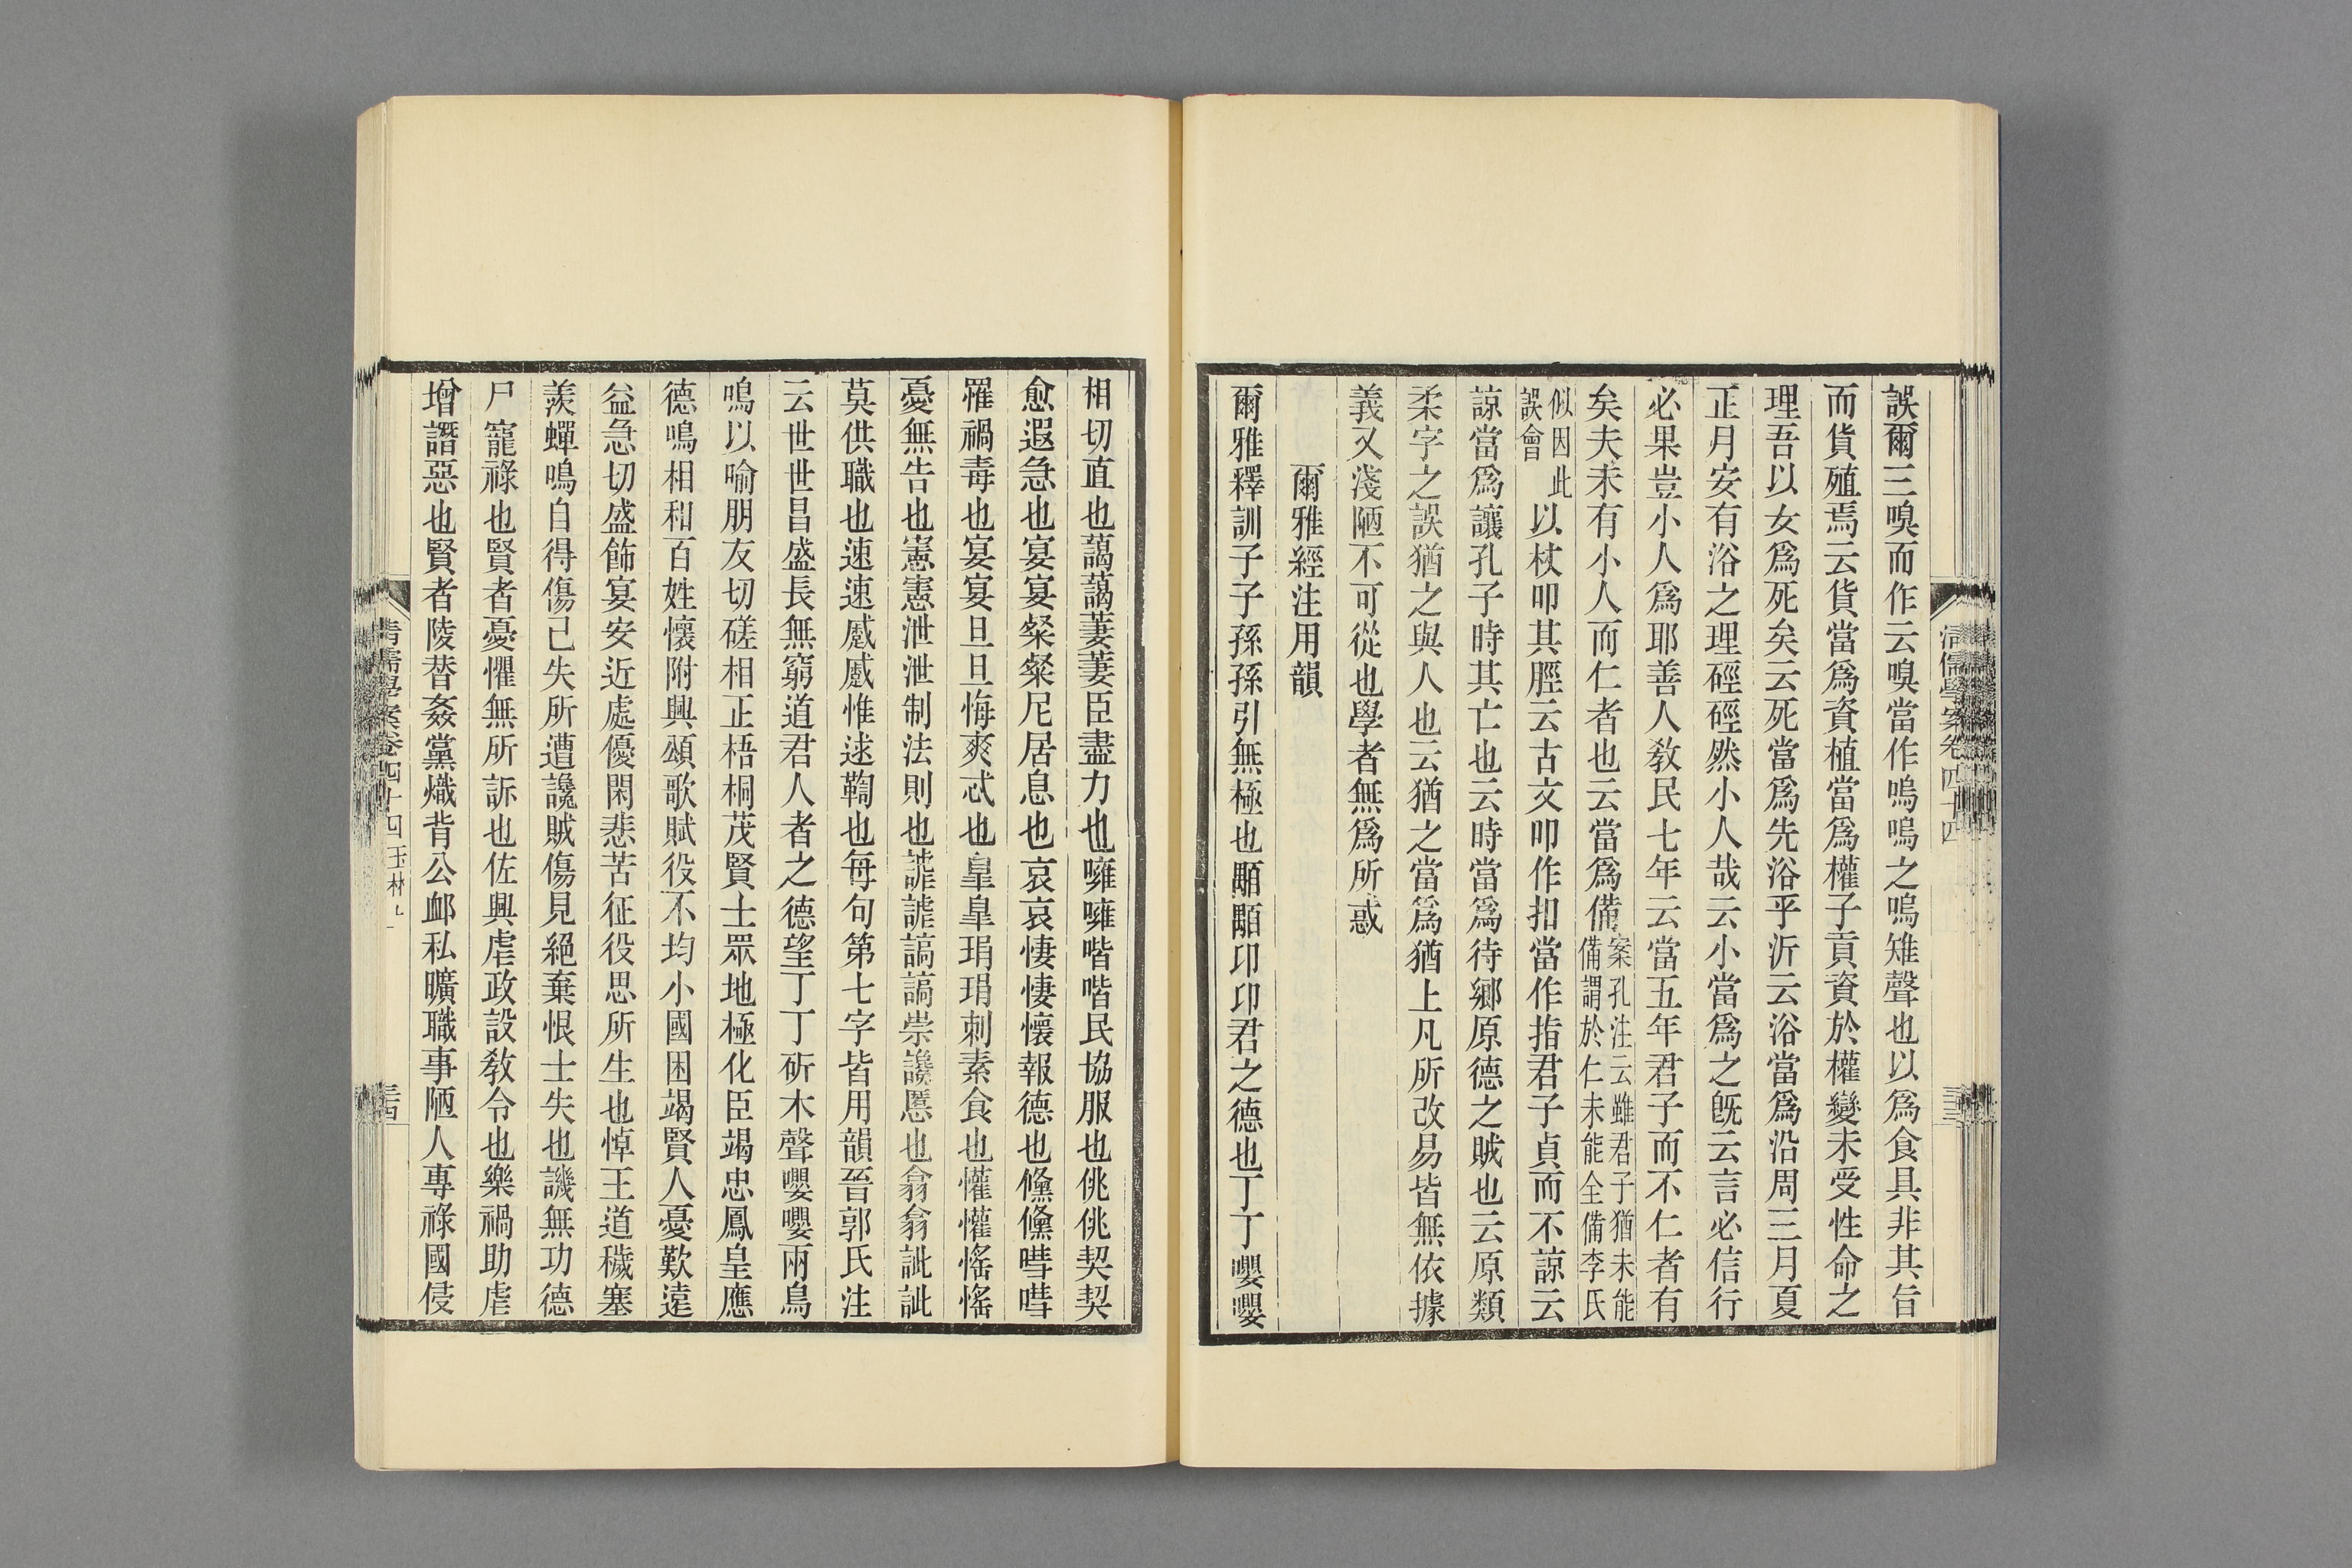 誤爾三嗅而作云嗅當作嗚嗚之嗚雉聲也以爲食具非其旨
而貨殖焉云貨當爲資植當爲權子貢資於權變未受性命之
理吾以女爲死矣云死當爲先浴乎沂云浴當爲沿周三月夏
正月安有浴之理硜硜然小人哉云小當爲之旣云言必信行
必果豈小人爲耶善人敎民七年云當五年君子而不仁者有
矣夫未有小人而仁者也云當爲備案孔注云雖君子猶未能備謂於仁未能全備李氏
似因此誤會以杖叩其脛云古文叩作扣當作指君子貞而不諒云
諒當爲讓孔子時其亡也云時當爲待鄉原德之賊也云原類
柔字之誤猶之與人也云猶之當爲猶上凡所改易皆無依據
義又淺陋不可從也學者無爲所惑
爾雅經注用韻
爾雅釋訓子子孫孫引無極也顒顒卬卬君之德也丁丁嚶嚶
相切直也藹藹萋萋臣盡力也噰噰喈喈民協服也佻佻契契
愈遐急也宴宴粲粲尼居息也哀哀悽悽懷報德也儵儵嘒嘒
罹禍毒也宴宴旦旦悔爽忒也皐皐琄琄刺素食也懽懽愮愮
憂無告也憲憲泄泄制法則也謔謔謞謞崇讒慝也翕翕訿訿
莫供職也速速蹙蹙惟逑鞫也每句第七字皆用韻晉郭氏注
云世世昌盛長無窮道君人者之德望丁丁斫木聲嚶嚶兩鳥
鳴以喻朋友切磋相正梧桐茂賢士眾地極化臣竭忠鳳皇應
德鳴相和百姓懷附興頌歌賦役不均小國困竭賢人憂歎遠
益急切盛飾宴安近處優閑悲苦征役思所生也悼王道穢塞
羨蟬鳴自得傷己失所遭讒賊傷見絕棄恨士失也譏無功德
尸寵祿也賢者憂懼無所訴也佐興虐政設敎令也樂禍助虐
增譖惡也賢者陵替姦黨熾背公卹私曠職事陋人專祿國侵
清儒學案卷四十四玉林